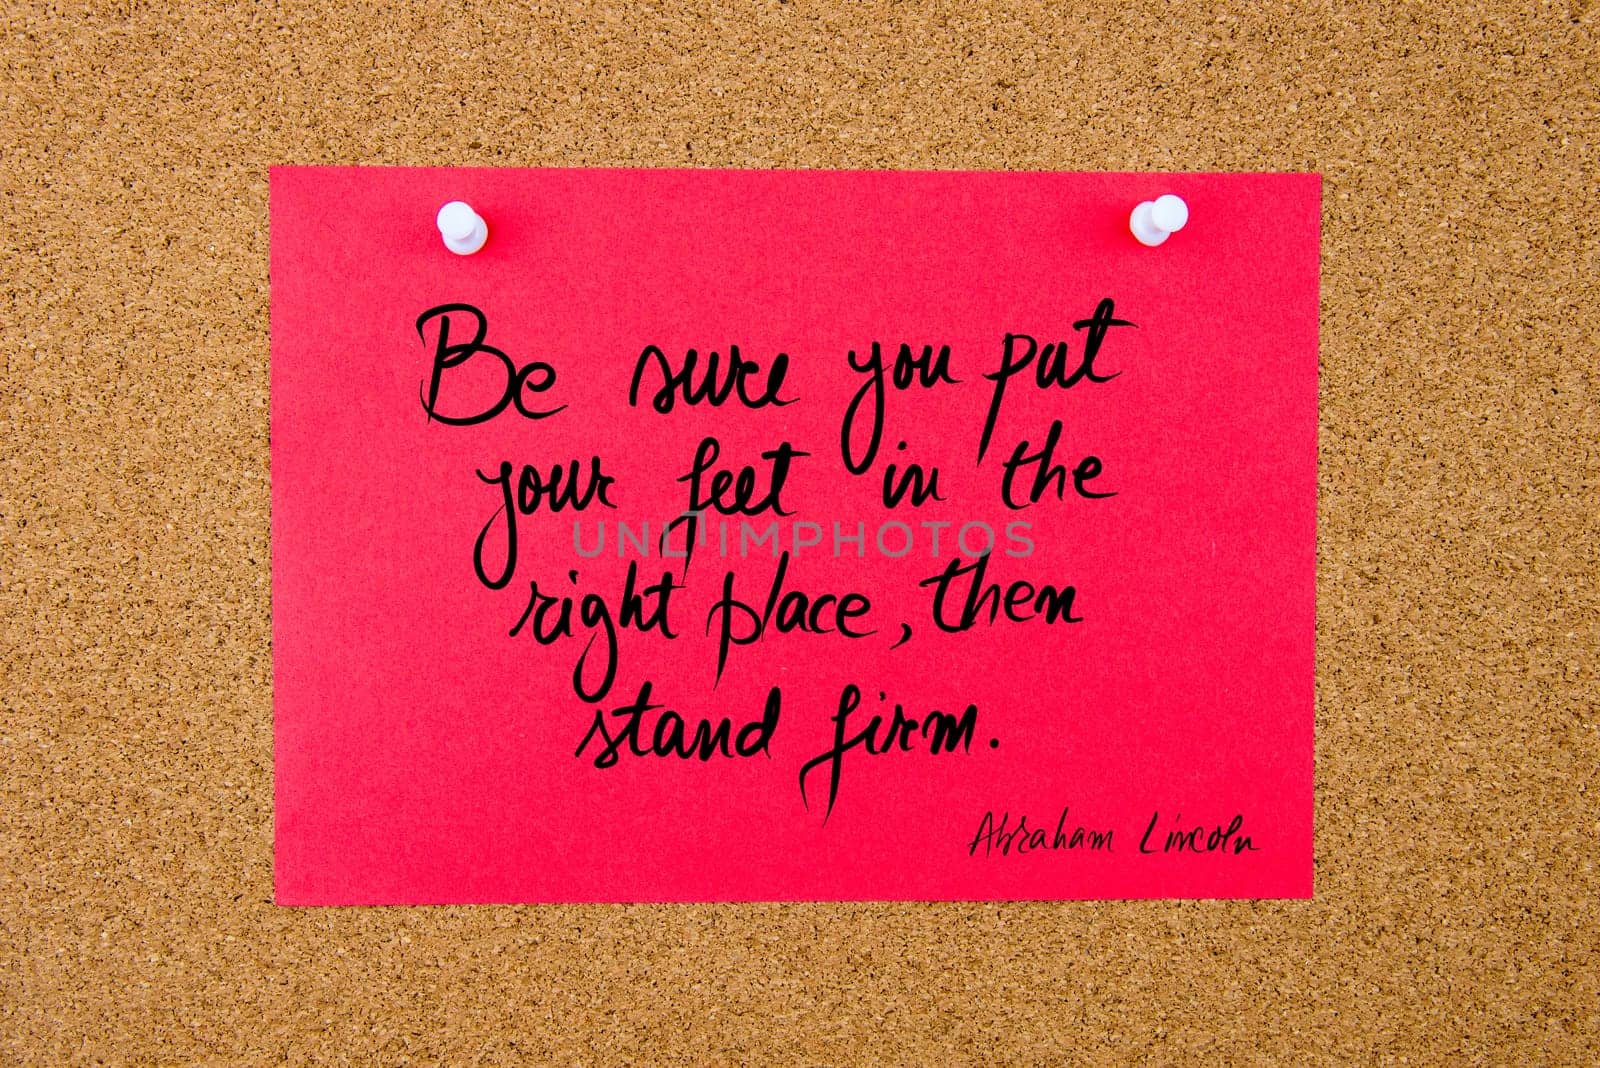 Be sure you put
your feet in the
UNLIMPHOTOS
right place, then
stand firm.
Abraham Lincoln